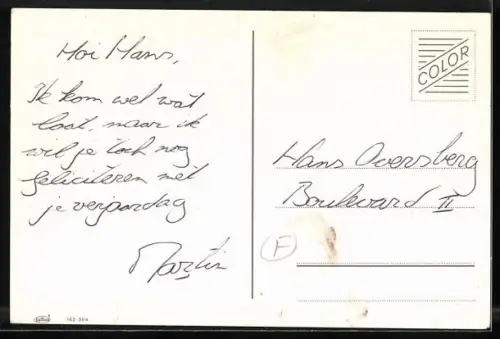 Hoi Hans,
Ik kom wel wat
laat, maar ik
wil je toch nog
feliciteren met
je verjaardag
Martin
COLOR
Hans Oversberg
Boulevard II
F